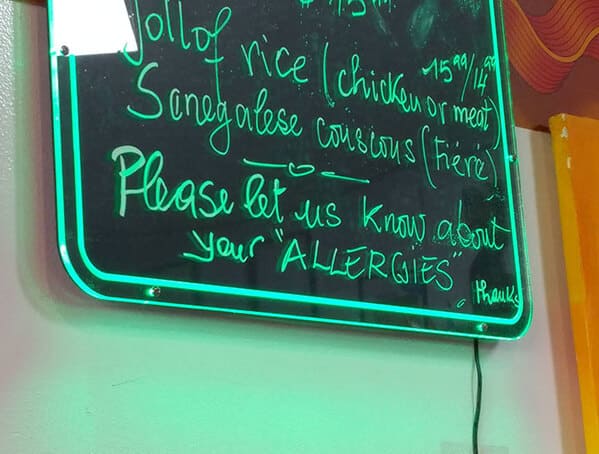 Jollof rice (chicken or meat) 15⁹⁹/14⁹⁹
Senegalese couscous (Tiéré)
Please let us know about
your "ALLERGIES"
thanks